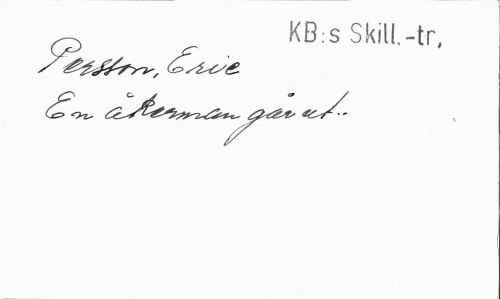 KB:s Skill.-tr,
Persson, Eric
En åkerman går ut..